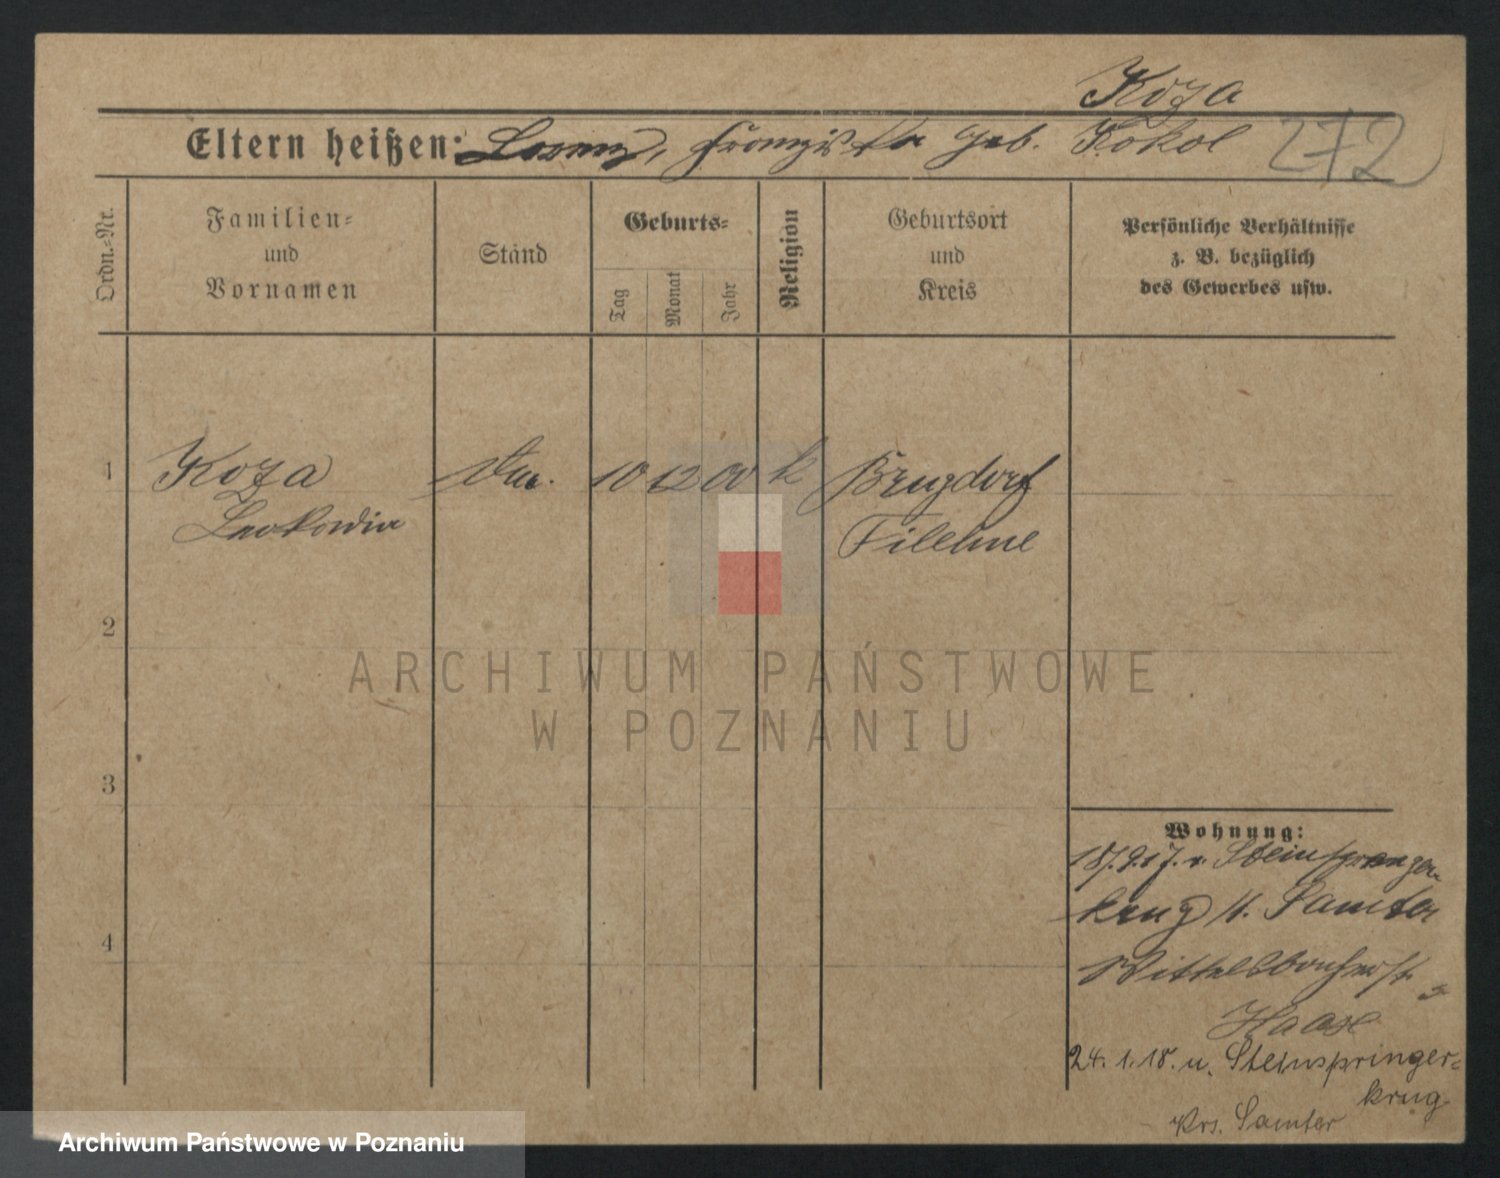 Koza
Eltern heißen: Lorenz, Franziska geb. Kokol
272
Ordn.=Nr.
Familien=
und
Vornamen
Stand
Geburts=
Tag
Monat
Jahr
Religion
Geburtsort
und
Kreis
Persönliche Verhältnisse
z. B. bezüglich
des Gewerbes usw.
1
Koza
10 12 00 k
Filehne
2
ARCHIWUM PAŃSTWOWE
W POZNANIU
3
4
Wohnung:
18.9.17. v. Steinspringer=
krug K. Samter
Wittelsbacherst.
Haase
24. 1. 18. n. Steinspringer=
krug
Krs. Samter
Archiwum Państwowe w Poznaniu